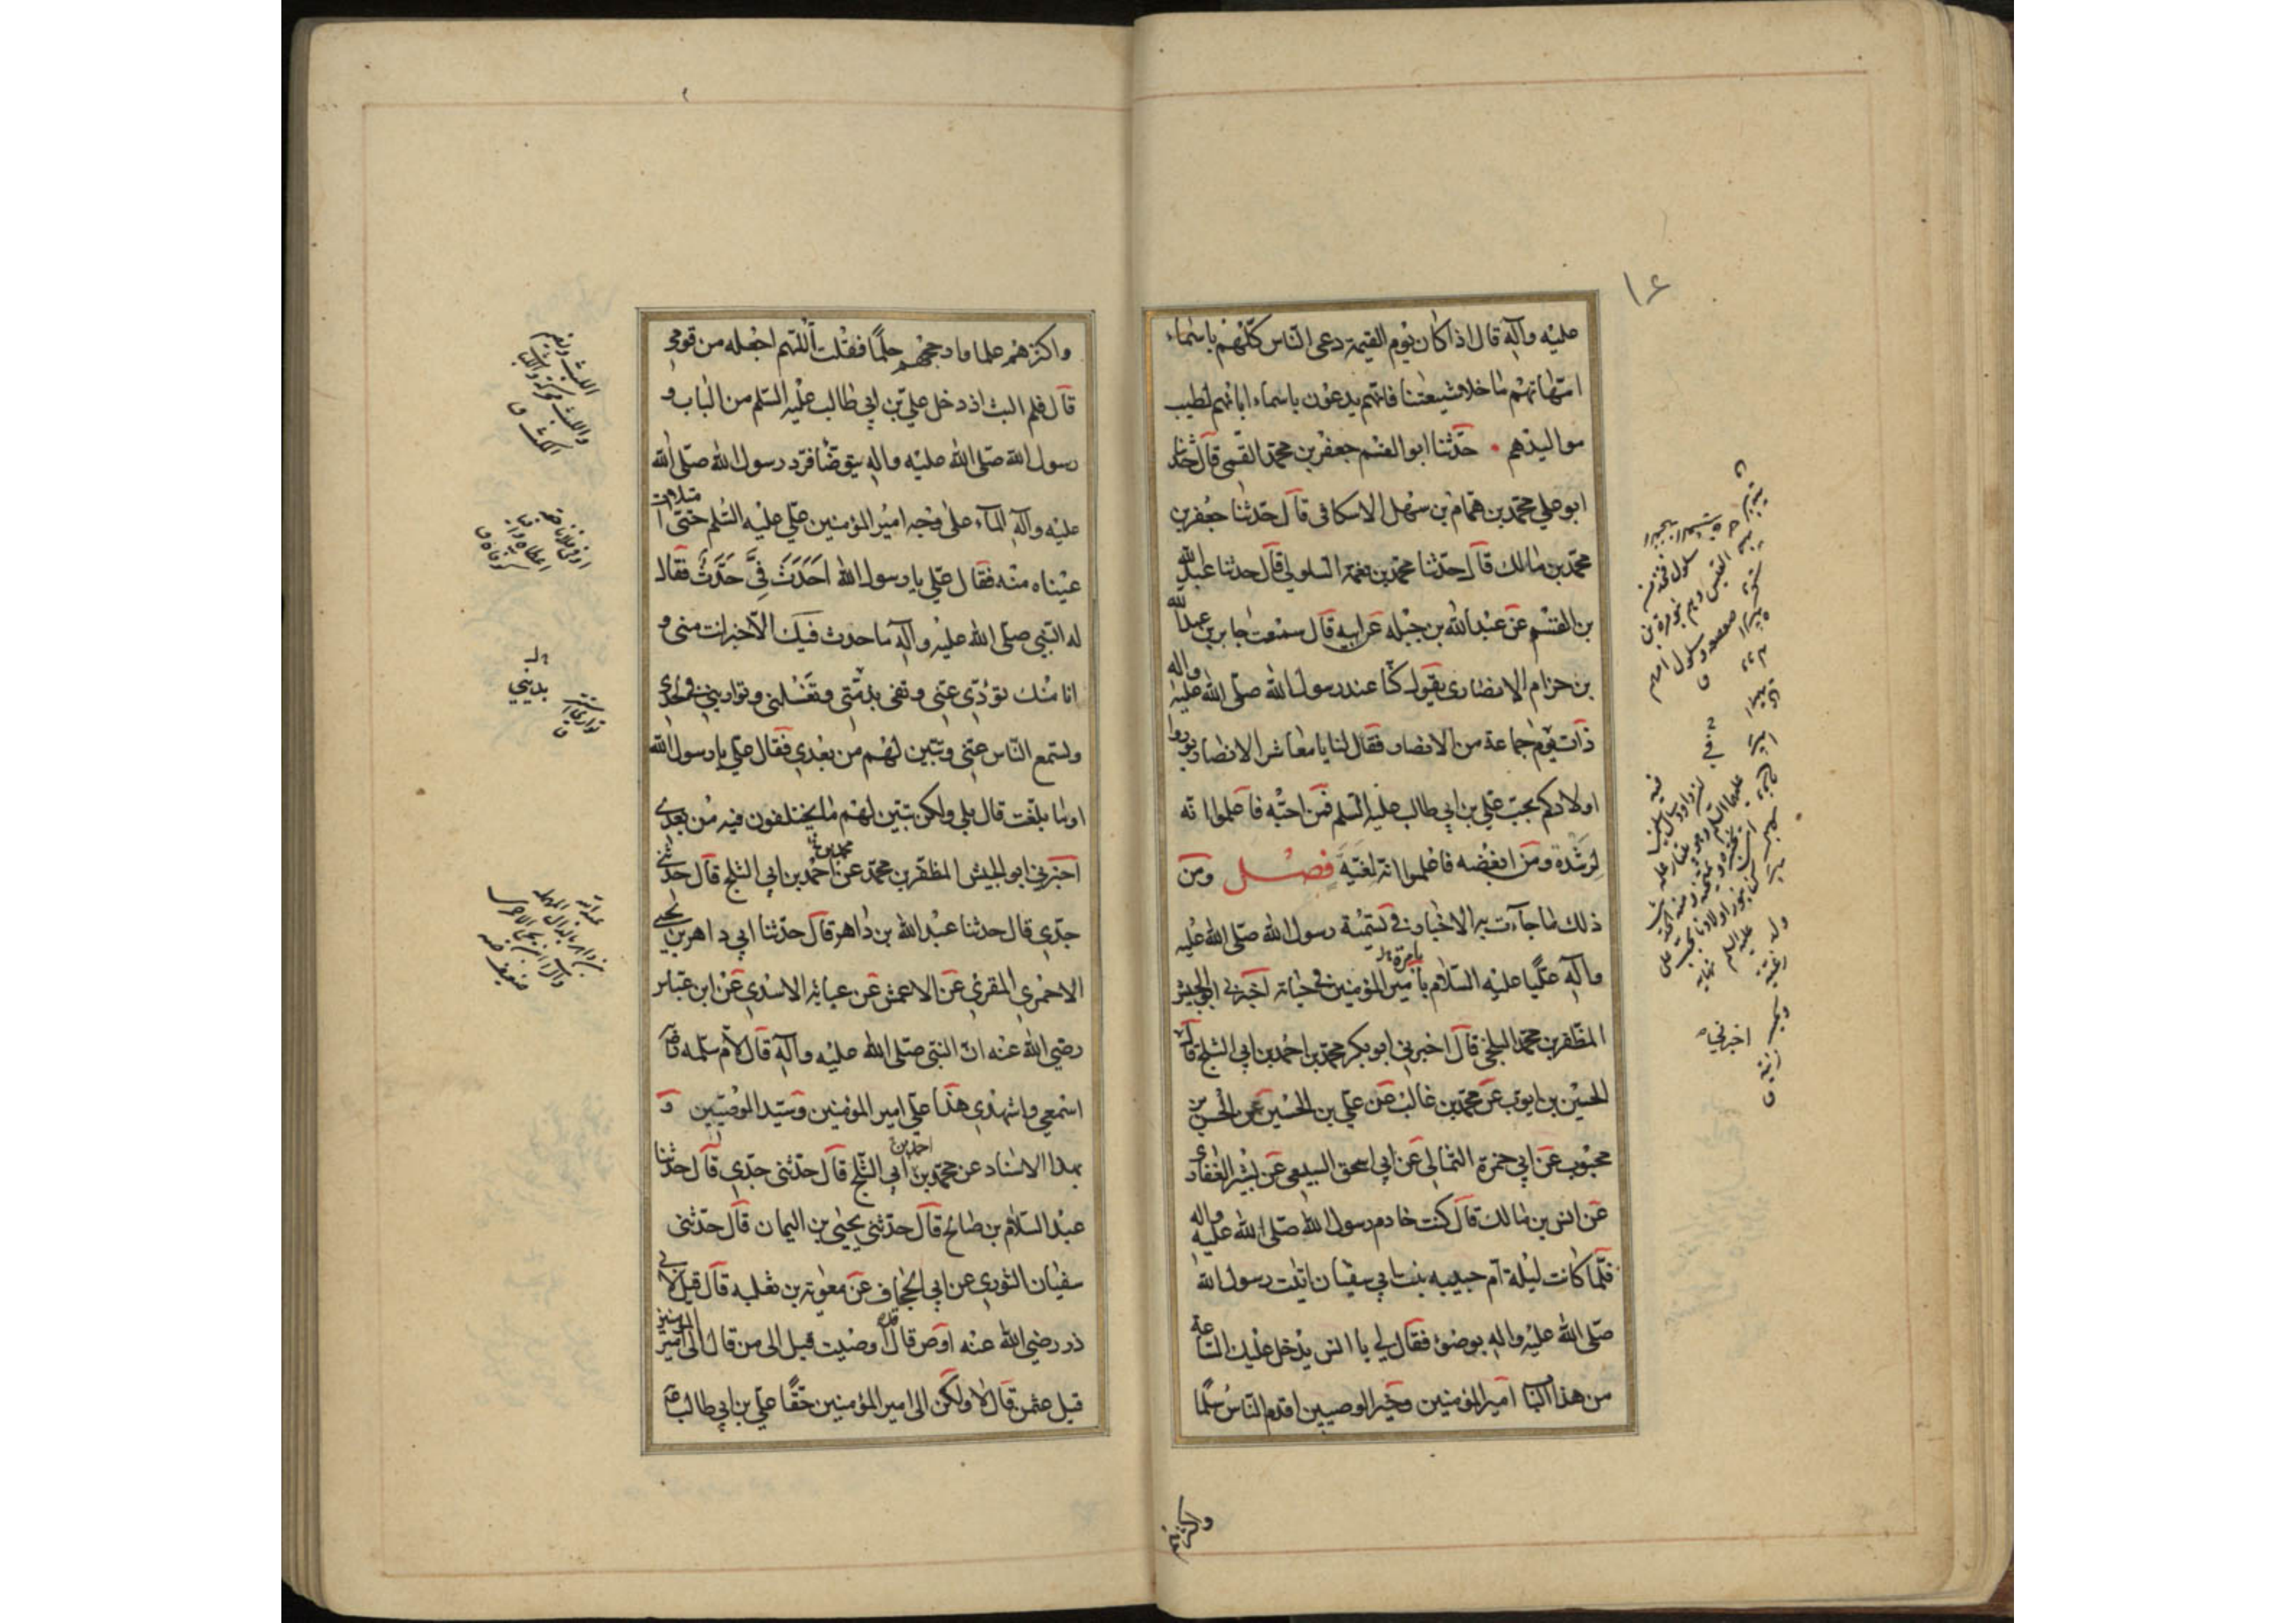 ١٤
عليه وآله قال اذا كان يوم القيمة دعى الناس كلّهم باسماء
امّهاتهم ما خلا شيعتنا فانّهم يدعون باسماء ابائهم لطيب
مواليدهم حدّثنا ابو القسم جعفر بن محمّد القمى قال حدثنا
ابو علي محمّد بن همّام بن سهل الاسكافى قال حدثنا جعفر بن
محمّد بن مالك قال حدّثنا محمّد بن نعمة السلولي قال حدثنا عبد الله
بن القسم عن عبد الله بن جبله عن ابيه قال سمعت جابر بن عبد الله
بن حزام الانصارى يقول كنّا عند رسول الله صلّى الله عليه واله
ذات يوم جماعة من الانصار فقال لنا يا معاشر الانصار بوروا
اولادكم بحب علي بن ابي طالب عليه السلم فمن احبّه فاعلموا انّه
لرشدة ومن ابغضه فاعلموا انّه لغيّة فصل ومن
ذلك ما جآءت به الاخبار في تسمية رسول الله صلّى الله عليه
وآله عليّا عليه السّلام بأمير المؤمنين فى حياته اخبرنى ابو الجيش
المظفر بن محمّد البلخي قال اخبرني ابو بكر محمّد بن احمد بن ابي الثلج قال
الحسين بن ايوب عن محمّد بن غالب عن علي بن الحسين عن الحسن بن
محبوب عن ابي حمزة الثمالى عن ابي اسحق السبيعي عن بشير الغفارى
عن انس بن مالك قال كنت خادم رسول الله صلّى الله عليه واله
فلمّا كانت ليلة ام حبيبه بنت ابي سفيان اتيت رسول الله
صلّى الله عليه واله بوضوء فقال لي يا انس يدخل عليك الساعة
من هذا الباب امير المؤمنين وخير الوصيين اقدم الناس سلما
واكثرهم علما وارجحهم حلمًا فقلت اللّهم اجعله من قومى
قال فلم البث اذ دخل علي بن ابي طالب عليه السّلم من الباب و
رسول الله صلّى الله عليه واله يتوضّا فرد رسول الله صلّى الله
عليه وآله المآء على وجه امير المؤمنين علي عليه السّلم حتى امتلات
عيناه منه فقال علي يا رسول الله احدث فيّ حدث فقال
له النّبي صلّى الله عليه وآله ما حدث فيك الّا خير انت منى و
انا منك تؤدّي عنّى وتفى بذمّتى وتغسلنى وتوارينى فى لحدى
وتسمع النّاس عنّى وتبيّن لهم من بعدي فقال علي يا رسول الله
اوما بلّغت قال بلى ولكن تبيّن لهم ما يختلفون فيه من بعدى
اخبرني ابو الجيش المظفّر بن محمّد عن محمد بن احمد بن ابي الثلج قال حدثنى
جدّي قال حدثنا عبد الله بن داهر قال حدّثنا ابي داهر بن يحيى
الاحمري المقرئ عن الاعمش عن عباية الاسدي عن ابن عبّاس
رضي الله عنه انّ النبى صلّى الله عليه وآله قال لأم سلمه رض
اسمعي واشهدي هذا علي امير المؤمنين وسيّد الوصيّين و
بهذا الاسناد عن محمّد بن احمد بن ابي الثلج قال حدّثنى جدّي قال حدّثنا
عبد السّلام بن صالح قال حدّثنى يحيى بن اليمان قال حدّثنى
سفيان الثوري عن ابي الجحاف عن معوية بن ثعلبه قال قيل لابى
ذر رضي الله عنه اوص قال قد اوصيت قيل الى من قال الى امير المؤمنين
قيل عثمن قال لا ولكن الى امير المؤمنين حقّا علي بن ابي طالب